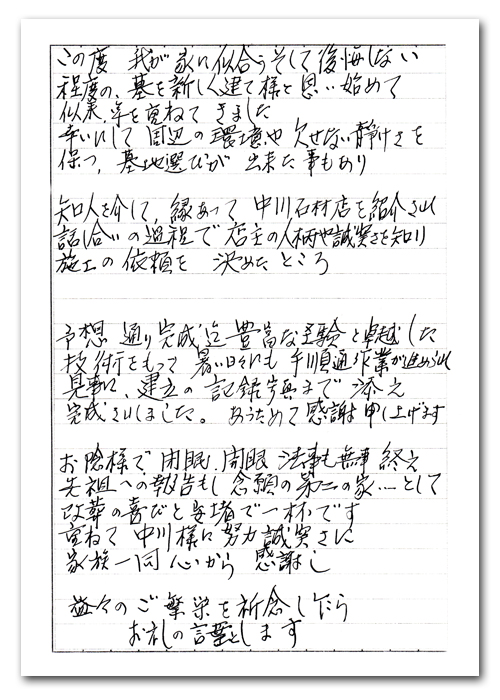 この度 我が家に似合うそして後悔しない
程度の、墓を新しく建て様と思い始めて
似来、年を重ねて きました
幸いにして 周辺の環境や 欠せない静けさを
保つ、墓地選びが 出来た事もあり
知人を介して、縁あって 中川石材店を紹介され
話し合いの過程で 店主の人柄や誠実さを知り
施工の依頼を 決めたところ
予想通り完成迄 豊富な経験と卓越した
技術をもって 暑い日々にも 手順通り作業が進められ
見事に、建立の 記録写真まで 添え
完成されました。 あらためて 感謝申し上げます
お陰様で 閉眼、開眼 法事も無事 終え
先祖への報告もし 念願の第二の家…として
改葬の喜びと安堵で一杯です
重ねて 中川様に 努力誠実さに
家族一同 心から 感謝し
益々のご繁栄を祈念しながら
お礼の言葉とします